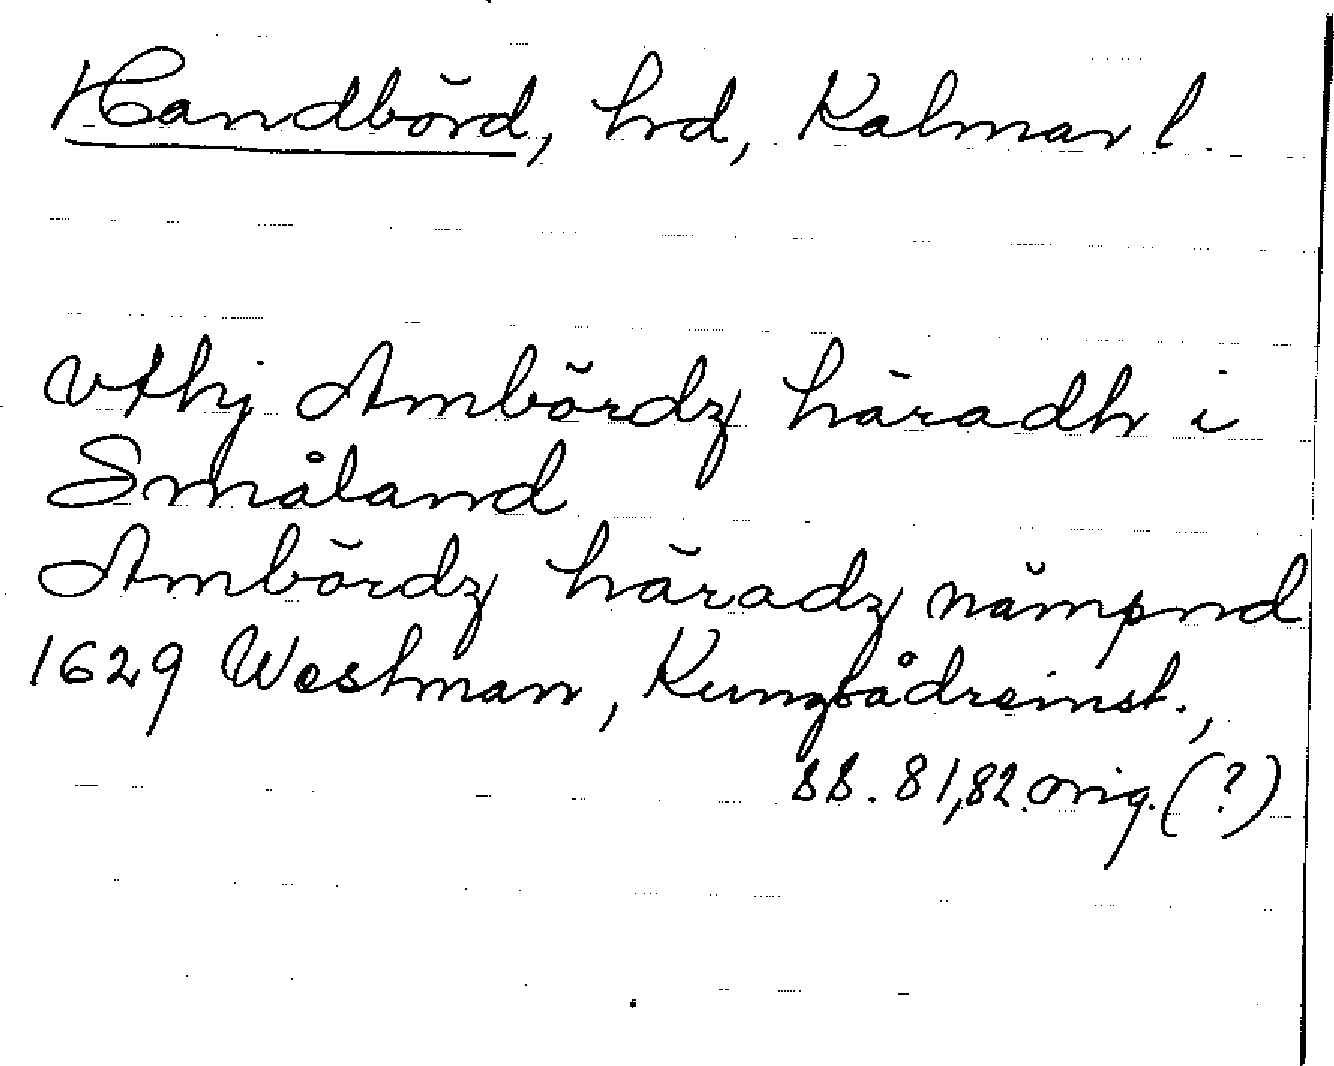 Handbörd, hrd, Kalmar l.
vthj Ambördz häradh i
Småland
Ambördz häradz nämpnd
1629 Westman, Kungbådreinst.,
ss. 81,82 orig. (?)